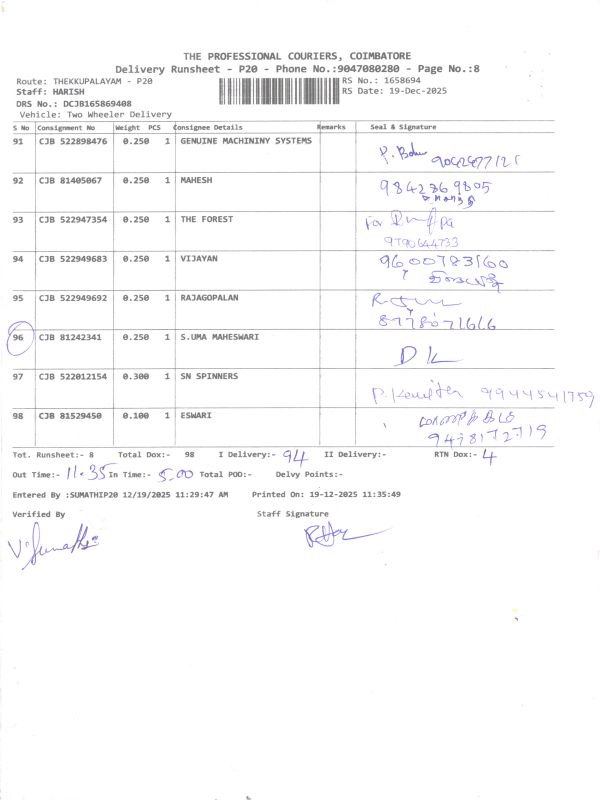 THE PROFESSIONAL COURIERS, COIMBATORE
Delivery Runsheet - P20 - Phone No.:9047080280 - Page No.:8
Route: THEKKUPALAYAM - P20 RS No.: 1658694
Staff: HARISH RS Date: 19-Dec-2025
DRS No.: DCJB165869408
Vehicle: Two Wheeler Delivery
S No Consignment No Weight PCS Consignee Details Remarks Seal & Signature
91 CJB 522898476 0.250 1 GENUINE MACHININY SYSTEMS
92 CJB 81405067 0.250 1 MAHESH 9842369805
93 CJB 522947354 0.250 1 THE FOREST For
9790644733
94 CJB 522949683 0.250 1 VIJAYAN 9600783160
95 CJB 522949692 0.250 1 RAJAGOPALAN
8778071616
96 CJB 81242341 0.250 1 S.UMA MAHESWARI DK
97 CJB 522012154 0.300 1 SN SPINNERS 9944541759
98 CJB 81529450 0.100 1 ESWARI
9478172719
Tot. Runsheet:- 8 Total Dox:- 98 I Delivery:- 94 II Delivery:- RTN Dox:- 4
Out Time:- 11.35 In Time:- 5.00 Total POD:- Delvy Points:-
Entered By :SUMATHIP20 12/19/2025 11:29:47 AM Printed On: 19-12-2025 11:35:49
Verified By Staff Signature